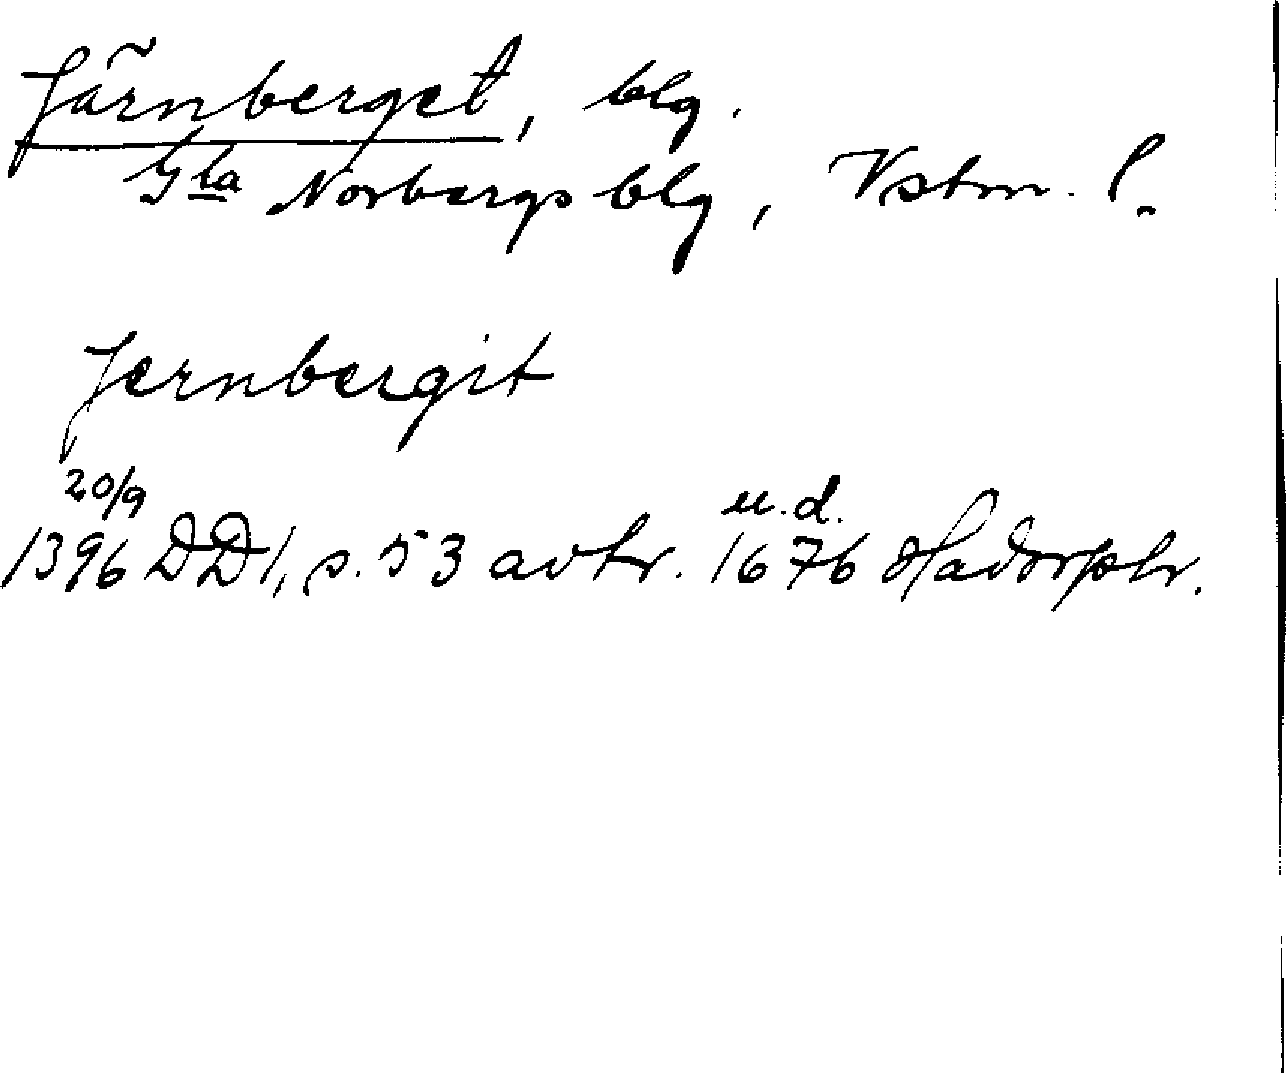 Järnberget, blg.
Gla Norbergs blg, Vstm. l.
Jernbergit
20/9 u.d.
1396 DD1, s. 53 avkr. 1676 Hadorph.